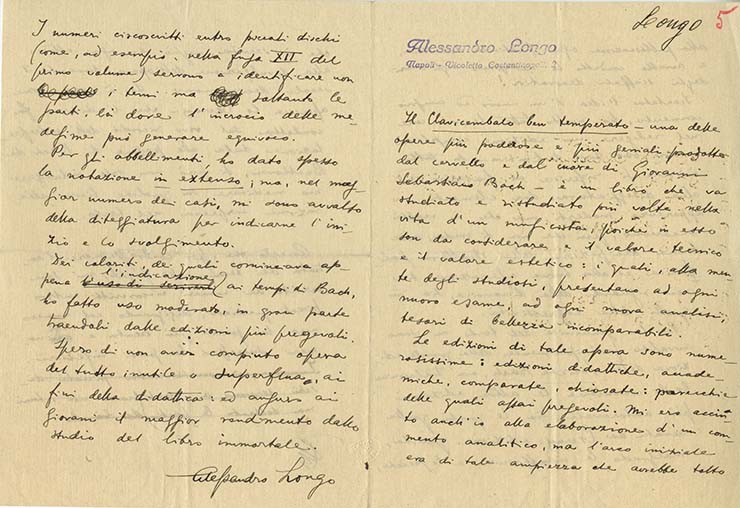 I numeri circoscritti entro piccoli dischi
(come, ad esempio, nella fuga XII del
primo volume) servono a identificare non
i temi ma soltanto le
parti, là dove l'incrocio delle me-
desime può generare equivoco.
Per gli abbellimenti, ho dato spesso
la notazione in extenso; ma, nel mag-
gior numero dei casi, mi sono avvalso
della diteggiatura per indicarne l'ini-
zio e lo svolgimento.
Dei coloriti dei quali cominciava ap-
pena l'indicazione ai tempi di Bach,
ho fatto uso moderato, in gran parte
traendoli dalle edizioni più pregevoli.
Spero di non aver compiuto opera
del tutto inutile o superflua, ai
fini della didattica: ed auguro ai
giovani il maggior rendimento dallo
studio del libro immortale.
Alessandro Longo
Longo 5
Alessandro Longo
Napoli - Vicoletto 2
Il Clavicembalo ben temperato - una delle
opere più poderose e più geniali
dal cervello e dal cuore di Giovanni
Sebastiano Bach - è un libro che va
studiato e ristudiato più volte nella
vita d'un musicista, poiché in esso
son da considerare e il valore tecnico
e il valore estetico: i quali, alla men-
te degli studiosi, presentano ad ogni
nuovo esame, ad ogni nuova analisi,
tesori di bellezza incomparabili.
Le edizioni di tale opera sono nume-
rosissime: edizioni didattiche, accade-
miche, comparate, chiosate: parecchie
delle quali assai pregevoli. Mi ero accin-
to anch'io alla elaborazione d'un com-
mento analitico, ma l'arco iniziale
era di tale ampiezza che avrebbe tolto